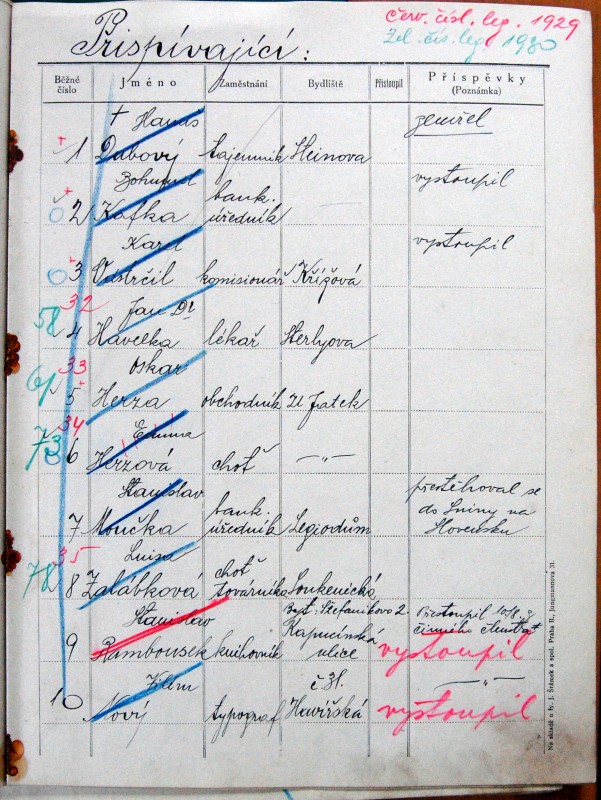 červ. čísl. leg. 1929
Zel. čís. leg. 1930
Přispívající:
Běžné číslo Jméno Zaměstnání Bydliště Přistoupil Příspěvky (Poznámka)
+ Hanuš zemřel
+ 1 Dubový tajemník Steinova
+ Bohumil bank. vystoupil
0 2 Kafka úředník
+ Karel vystoupil
0 3 Vústrčil komisionář Křížová
32 Jan Dr
58 4 Havelka lékař Sterlyova
33 Oskar
61 5 + Herza obchodník
34 Emma
73 6 Herzová choť -„-
Stanislav bank. přestěhoval se
7 Moučka úředník Legiodům do Sniny na
Slovensku
35 Luisa choť
78 8 Zalábková továrníka Soukenická
Stanislav Byt: Štefánikova 2. Přestoupil 10/8.
9 Rambousek knihovník Kapucínská činného
ulice vystoupil
Vilém č. 31. -„-
10 Nový typograf Havířská vystoupil
Na skladě u fy. J. Šrámek a spol. Praha II., Jungmannova 31.